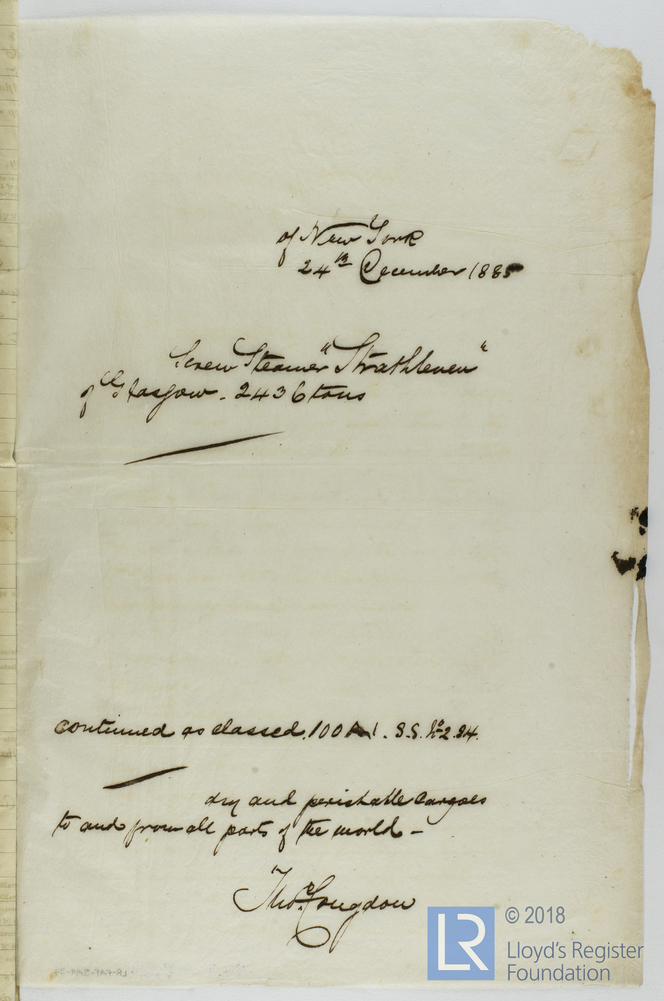 of New York
24th December 1885
Screw Steamer "Strathleven"
of Glasgow - 2436 tons
continued as classed, 100 A 1. S.S. No 2. 84.
dry and perishable Cargoes
to and from all parts of the world -
Thos. Congdon
LR
© 2018
Lloyd's Register
Foundation